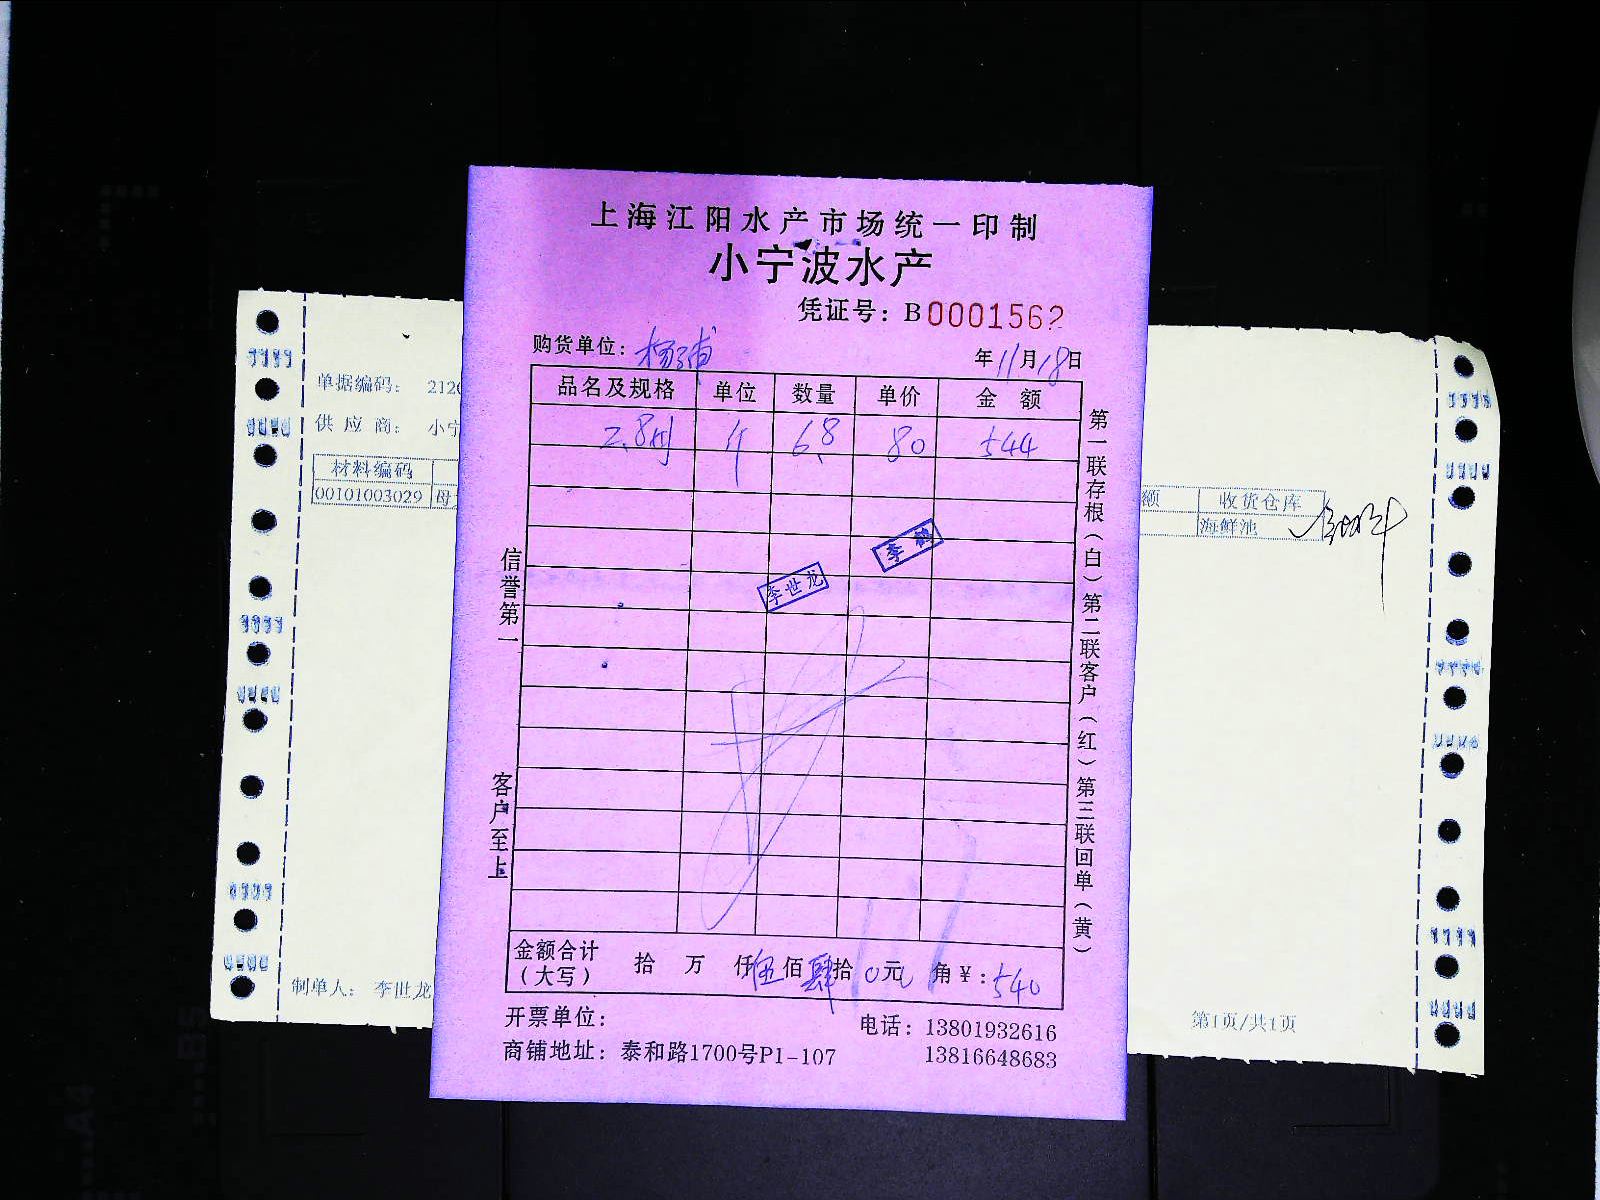 上海江阳水产市场统一印制
小宁波水产
凭证号：B0001562
购货单位：杨浦
年11月18日
品名及规格 单位 数量 单价 金额
2.8 斤 6.8 80 544
李鹤
李世龙
信誉第一
客户至上
第一联存根（白）第二联客户（红）第三联回单（黄）
金额合计（大写） 拾 万 仟伍佰肆拾0元 角￥：540
开票单位：
电话：13801932616
商铺地址：泰和路1700号P1-107
13816648683
单据编码： 212
供应商： 小宁
材料编码
00101003029 母
额 收货仓库
海鲜池
制单人： 李世龙
第1页/共1页